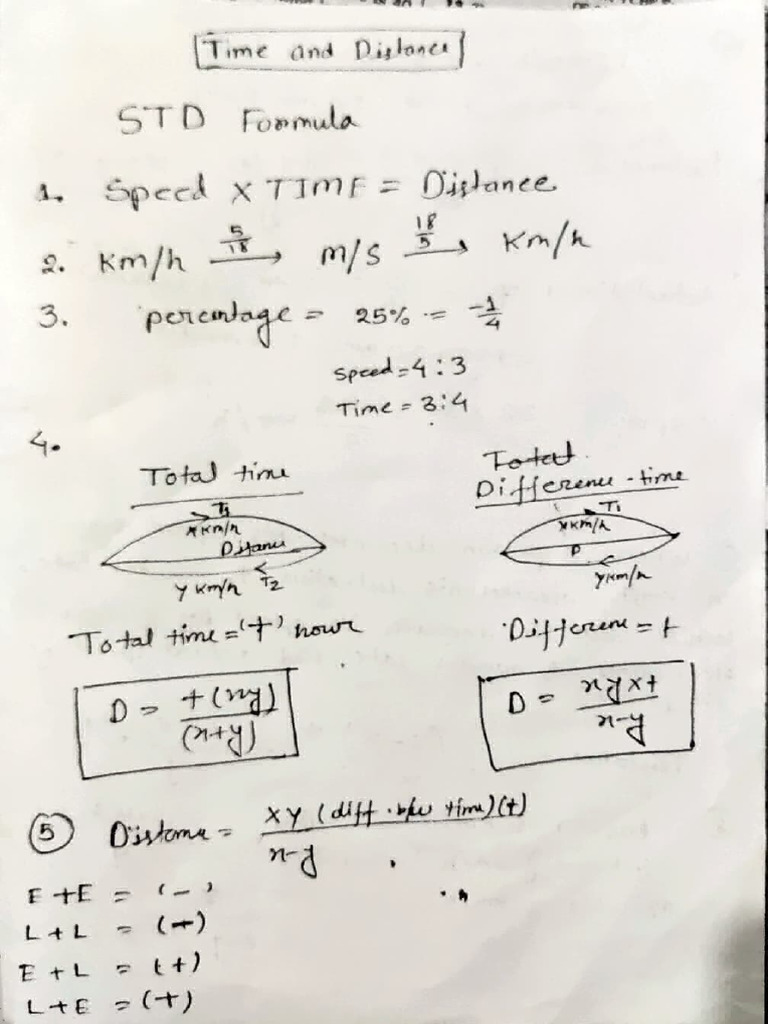 Time and Distance
STD Formula
1. Speed X TIME = Distance
2. Km/h 5/18 → m/s 18/5 → Km/h
3. percentage = 25% = -1/4
Speed = 4:3
Time = 3:4
4.
Total time
T1
x km/h
Distance
y km/h T2
Total time = 't' hour
D = t(xy)/(x+y)
Total
Difference - time
T1
x km/h
D
y km/h
Difference = t
D = xy x t/x-y
5 Distance = XY (diff. b/w time)(t)/x-y
E + E = (-)
L + L = (-)
E + L = (+)
L + E = (+)